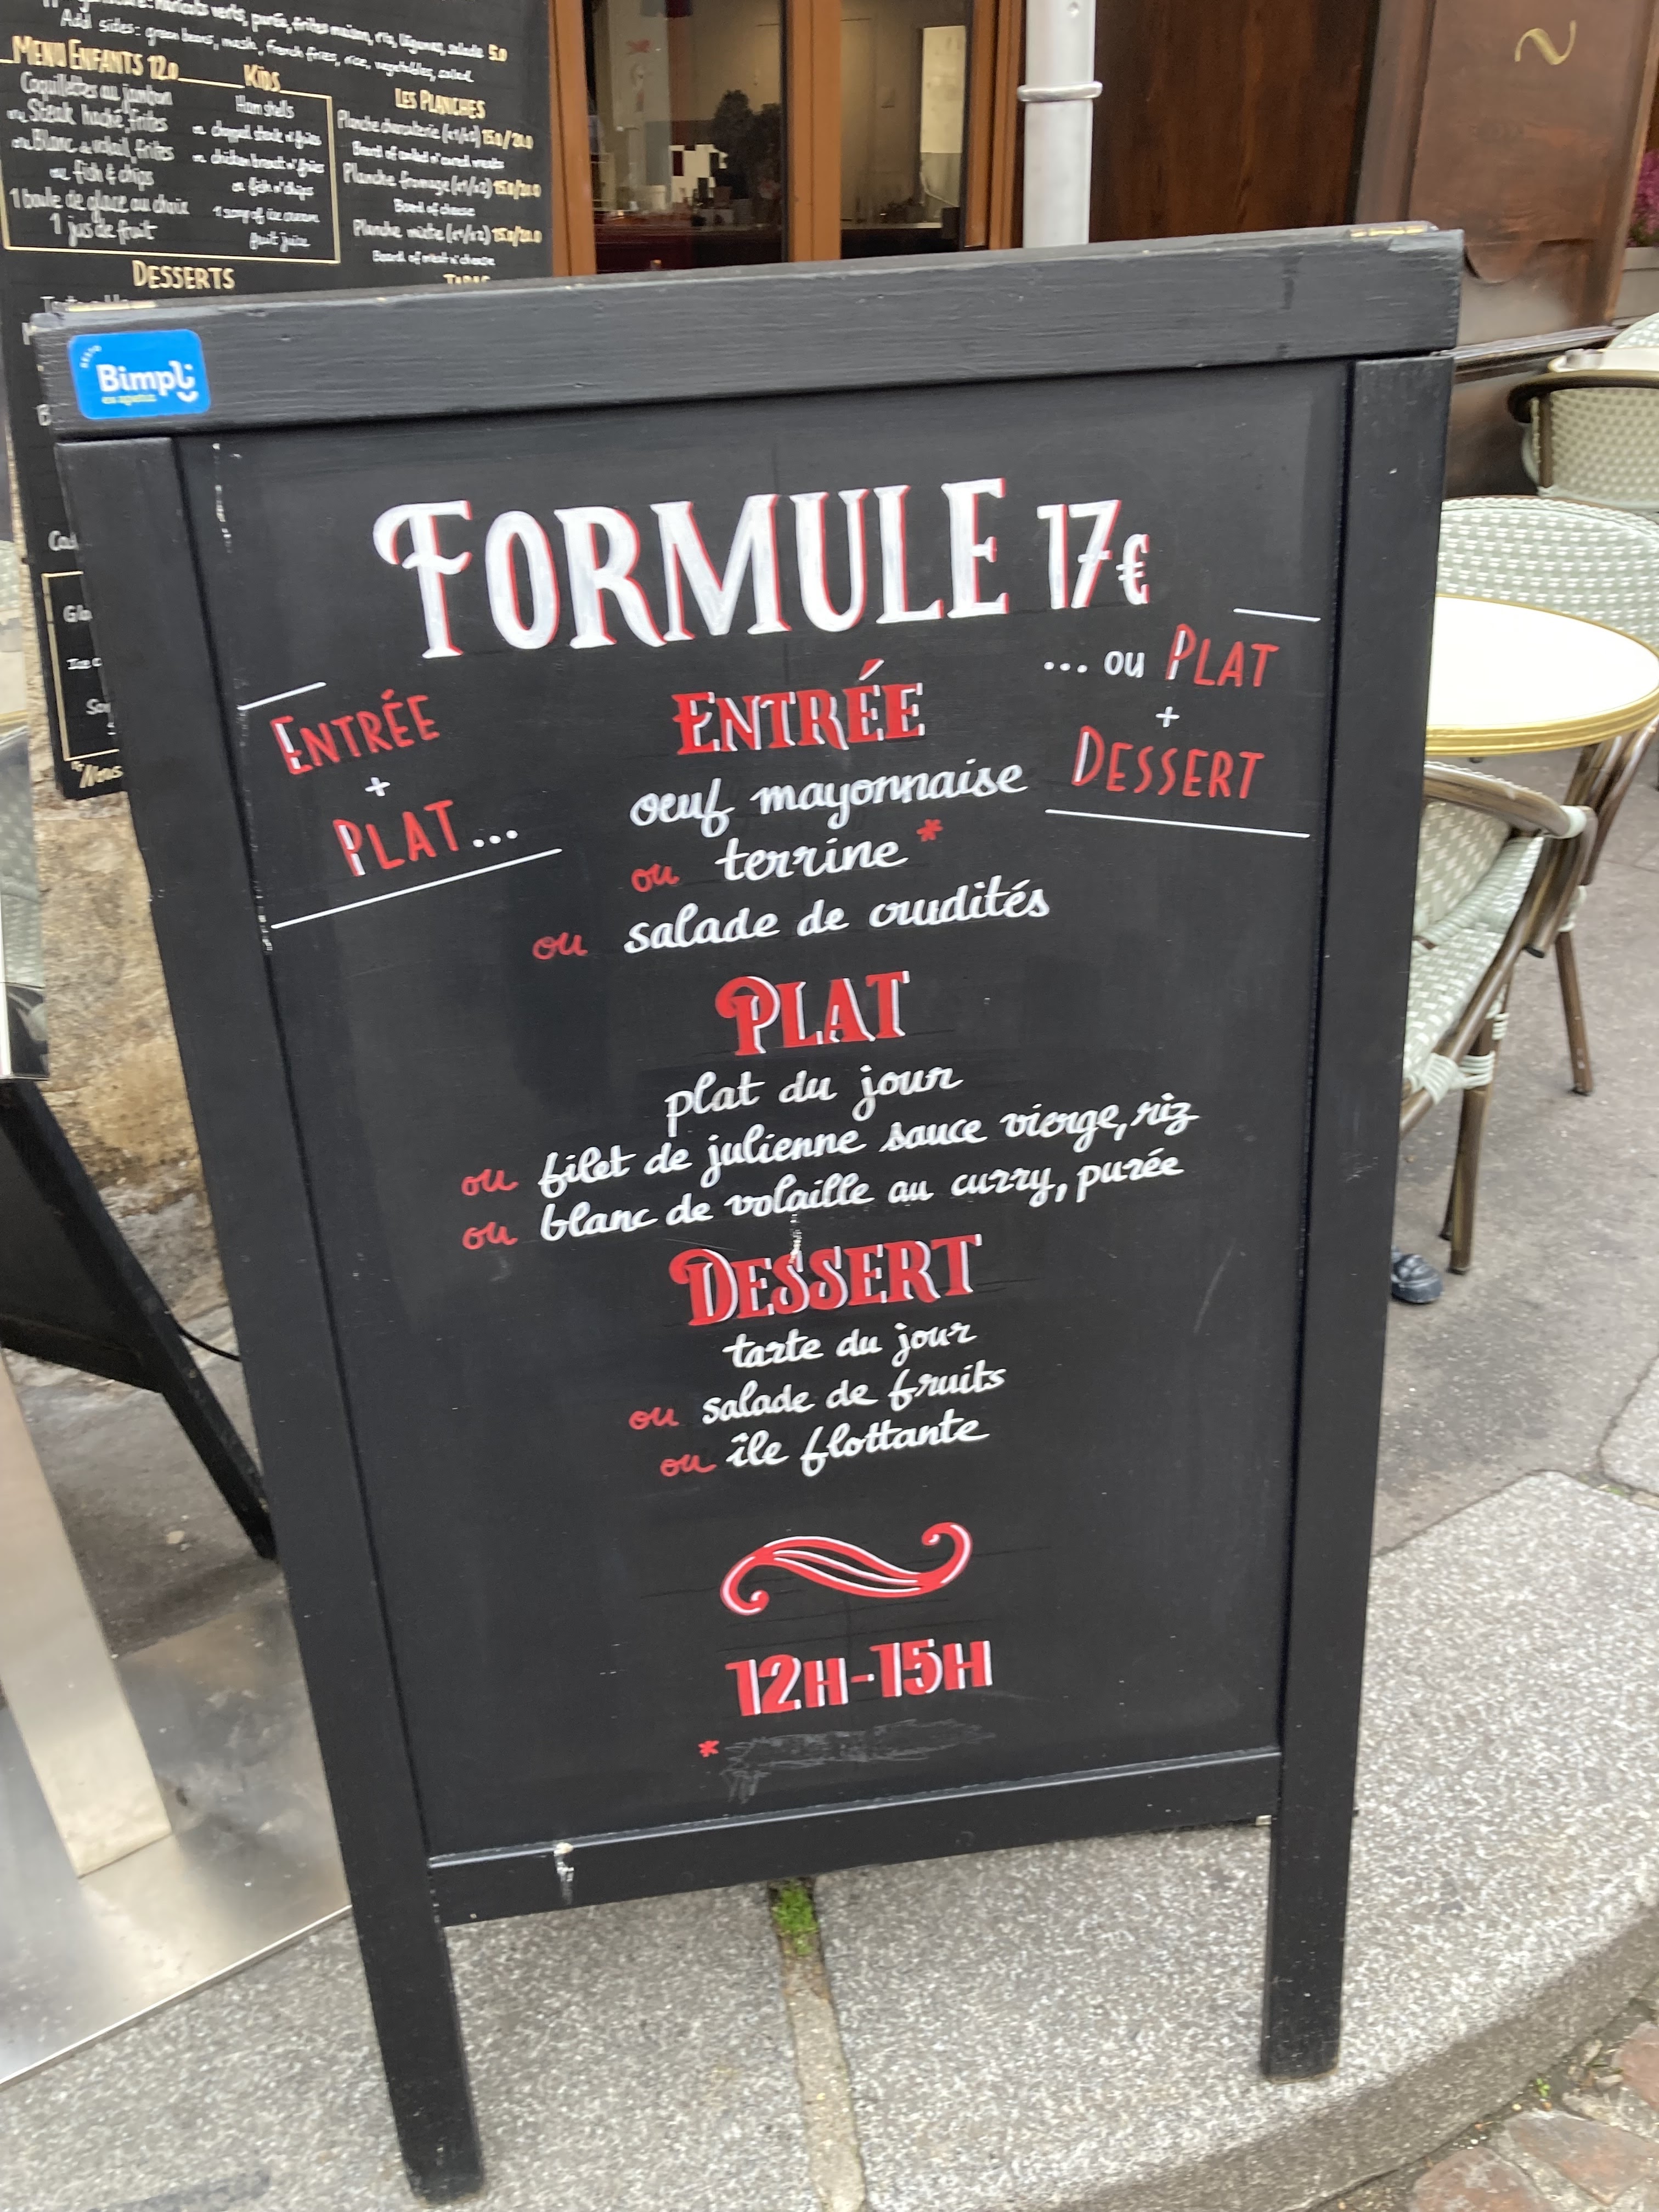 Add sides: green beans, mash, french fries, rice, vegetables, salad
MENU ENFANTS 12.0
KIDS
Coquillettes au jambon
ou Steak haché, frites
ou Blanc de volail, frites
ou fish & chips
1 boule de glace au choix
1 jus de fruit
Ham shells
or chopped steak n' fries
or chicken breast n' fries
or fish n' chips
1 scoop of ice cream
fruit juice
LES PLANCHES
Planche charcuterie (x1/x2) 15.0/20.0
Board of cooked n' cured meats
Planche fromage (x1/x2) 15.0/20.0
Board of cheese
Planche mixte (x1/x2) 15.0/20.0
Board of meat n' cheese
DESSERTS
Bimpli
FORMULE 17€
ENTRÉE
+
PLAT...
... ou PLAT
+
DESSERT
ENTRÉE
oeuf mayonnaise
ou terrine *
ou salade de crudités
PLAT
plat du jour
ou filet de julienne sauce vierge, riz
ou blanc de volaille au curry, purée
DESSERT
tarte du jour
ou salade de fruits
ou île flottante
12H-15H
*